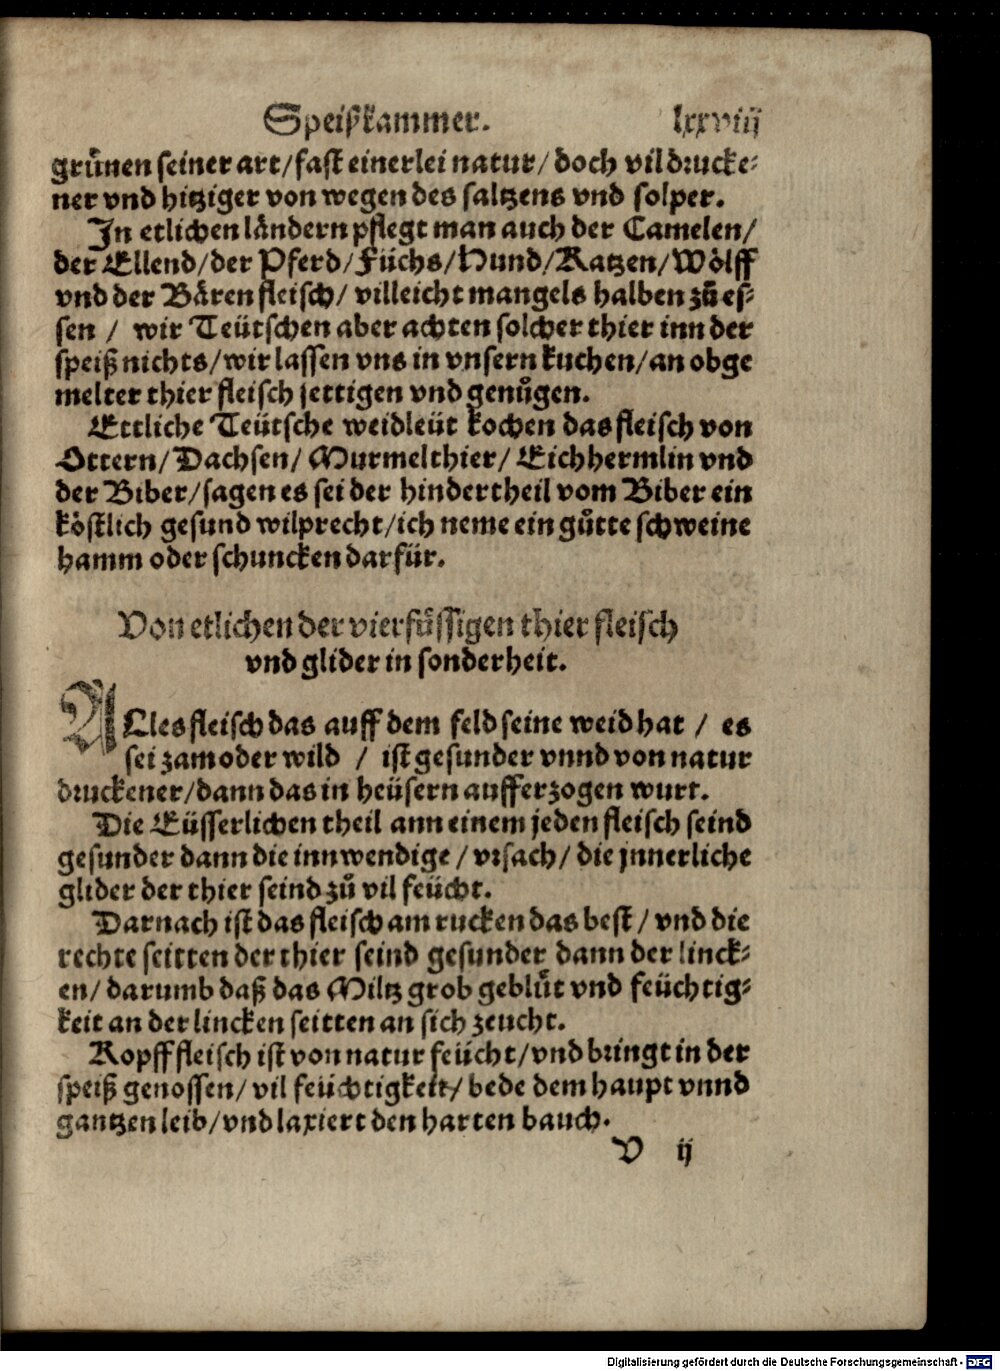 Speißkammer. lxxviij
gruͤnen seiner art/fast einerlei natur/doch vil drucke⸗
ner vnd hitziger von wegen des saltzens vnd solper.
In etlichen laͤndern pflegt man auch der Camelen/
der Ellend/der Pferd/Fuͤchs/Hund/Katzen/Woͤlff
vnd der Baͤren fleisch/ villeicht mangels halben zuͦ es⸗
sen / wir Teütschen aber achten solcher thier inn der
speiß nichts/wir lassen vns in vnsern kuchen/an obge
melter thier fleisch settigen vnd genuͤgen.
Ettliche Teütsche weidleüt kochen das fleisch von
Ottern/Dachsen/Murmelthier/Eichhermlin vnd
der Biber/sagen es sei der hindertheil vom Biber ein
koͤstlich gesund wilprecht/ich neme ein guͦtte schweine
hamm oder schuncken darfür.
Von etlichen der vierfuͤssigen thier fleisch
vnd glider in sonderheit.
ALles fleisch das auff dem feld seine weid hat / es
sei zam oder wild / ist gesunder vnnd von natur
druckener/dann das in heüsern aufferzogen wurt.
Die Eüsserlichen theil ann einem jeden fleisch seind
gesunder dann die innwendige/vrsach/die jnnerliche
glider der thier seind zuͦ vil feücht.
Darnach ist das fleisch am rucken das best/vnd die
rechte seitten der thier seind gesunder dann der linck⸗
en/darumb daß das Miltz grob gebluͤt vnd feüchtig⸗
keit an der lincken seitten an sich zeucht.
Kopff fleisch ist von natur feücht/vnd bringt in der
speiß genossen/vil feüchtigkeit/bede dem haupt vnnd
gantzen leib/vnd laxiert den harten bauch.
V ij
Digitalisierung gefördert durch die Deutsche Forschungsgemeinschaft - DFG